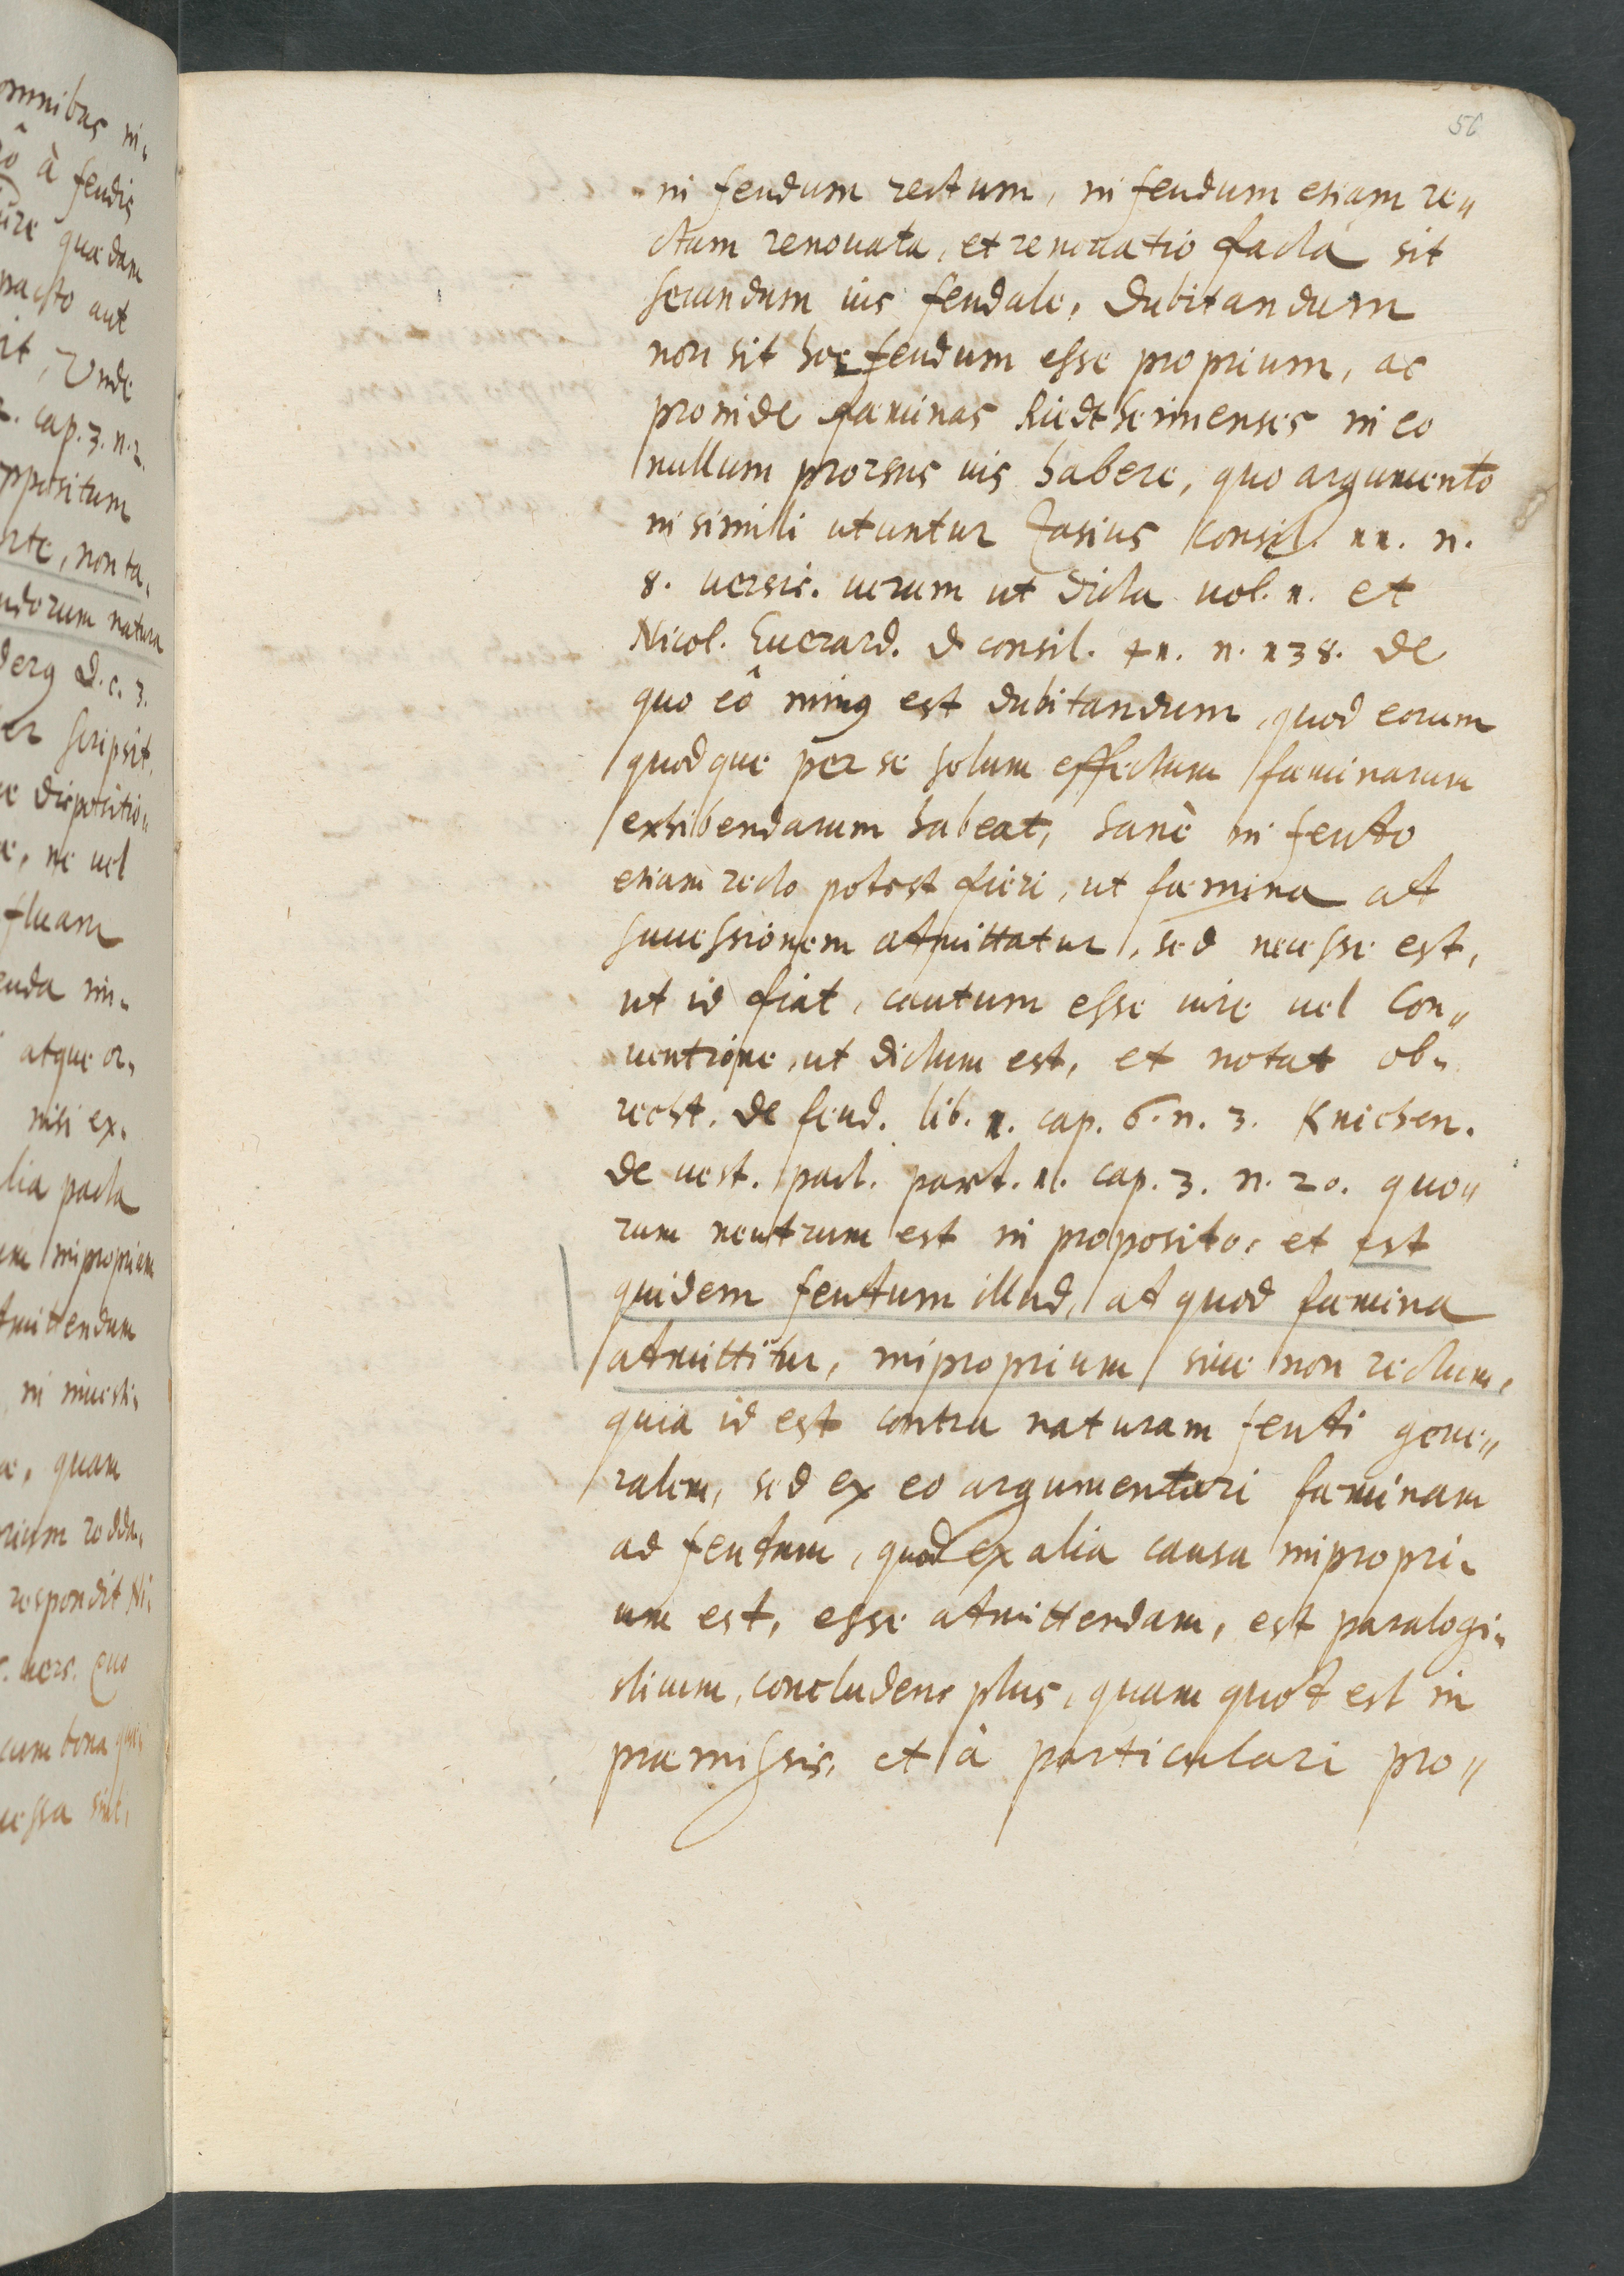 56
in feudum rectum, in feudum etiam re„
ctum renouata, et renouatio facta sit
secundum ius feudale, dubitandum
non sit hoc feudum esse proprium, ac
proinde fæminas Riedtheimenses in eo
nullum prorsus ius habere, quo argumento
in simili utuntur Zasius consil. 11. n.
8. uersic. uerum ut dicta uol. 1. et
Nicol. Euerard. d. consil. 71. n. 138. de
quo eô minus est dubitandum, quod eorum
quodque per se solum effectum fæminarum
exhibendarum habeat, sanè in feudo
etiam recto potest fieri, ut fæmina ad
successionem admittatur, sed necesse est,
ut id fiat, cautum esse iure uel Con„
uentione, ut dictum est, et notat ob-
recht. de feud. lib. 1. cap. 6. n. 3. Knichen.
de uest. pact. part. 1. cap. 3. n. 20. quo„
rum neutrum est in proposito, et est
quidem feudum illud, ad quod fæmina
admittitur, improprium siue non rectum,
quia id est contra naturam feudi gene„
ralem, sed ex eo argumentari fæminam
ad feudum, quod ex alia causa impropri-
um est, esse admittendam, est paralogi-
sticum, concludens plus, quam quod est in
præmissis, et à particulari pro„
omnibus in-
à feudis
iure quædam
pacto aut
Unde
cap. 3. n. 2.
oppositum
non ta-
feudorum natura
d. c. 3.
scripsit,
dispositio„
ne uel
atque or-
nisi ex-
pacta
impropriam
in inuesti-
quam
respondit Ni-
uers.
cum bona